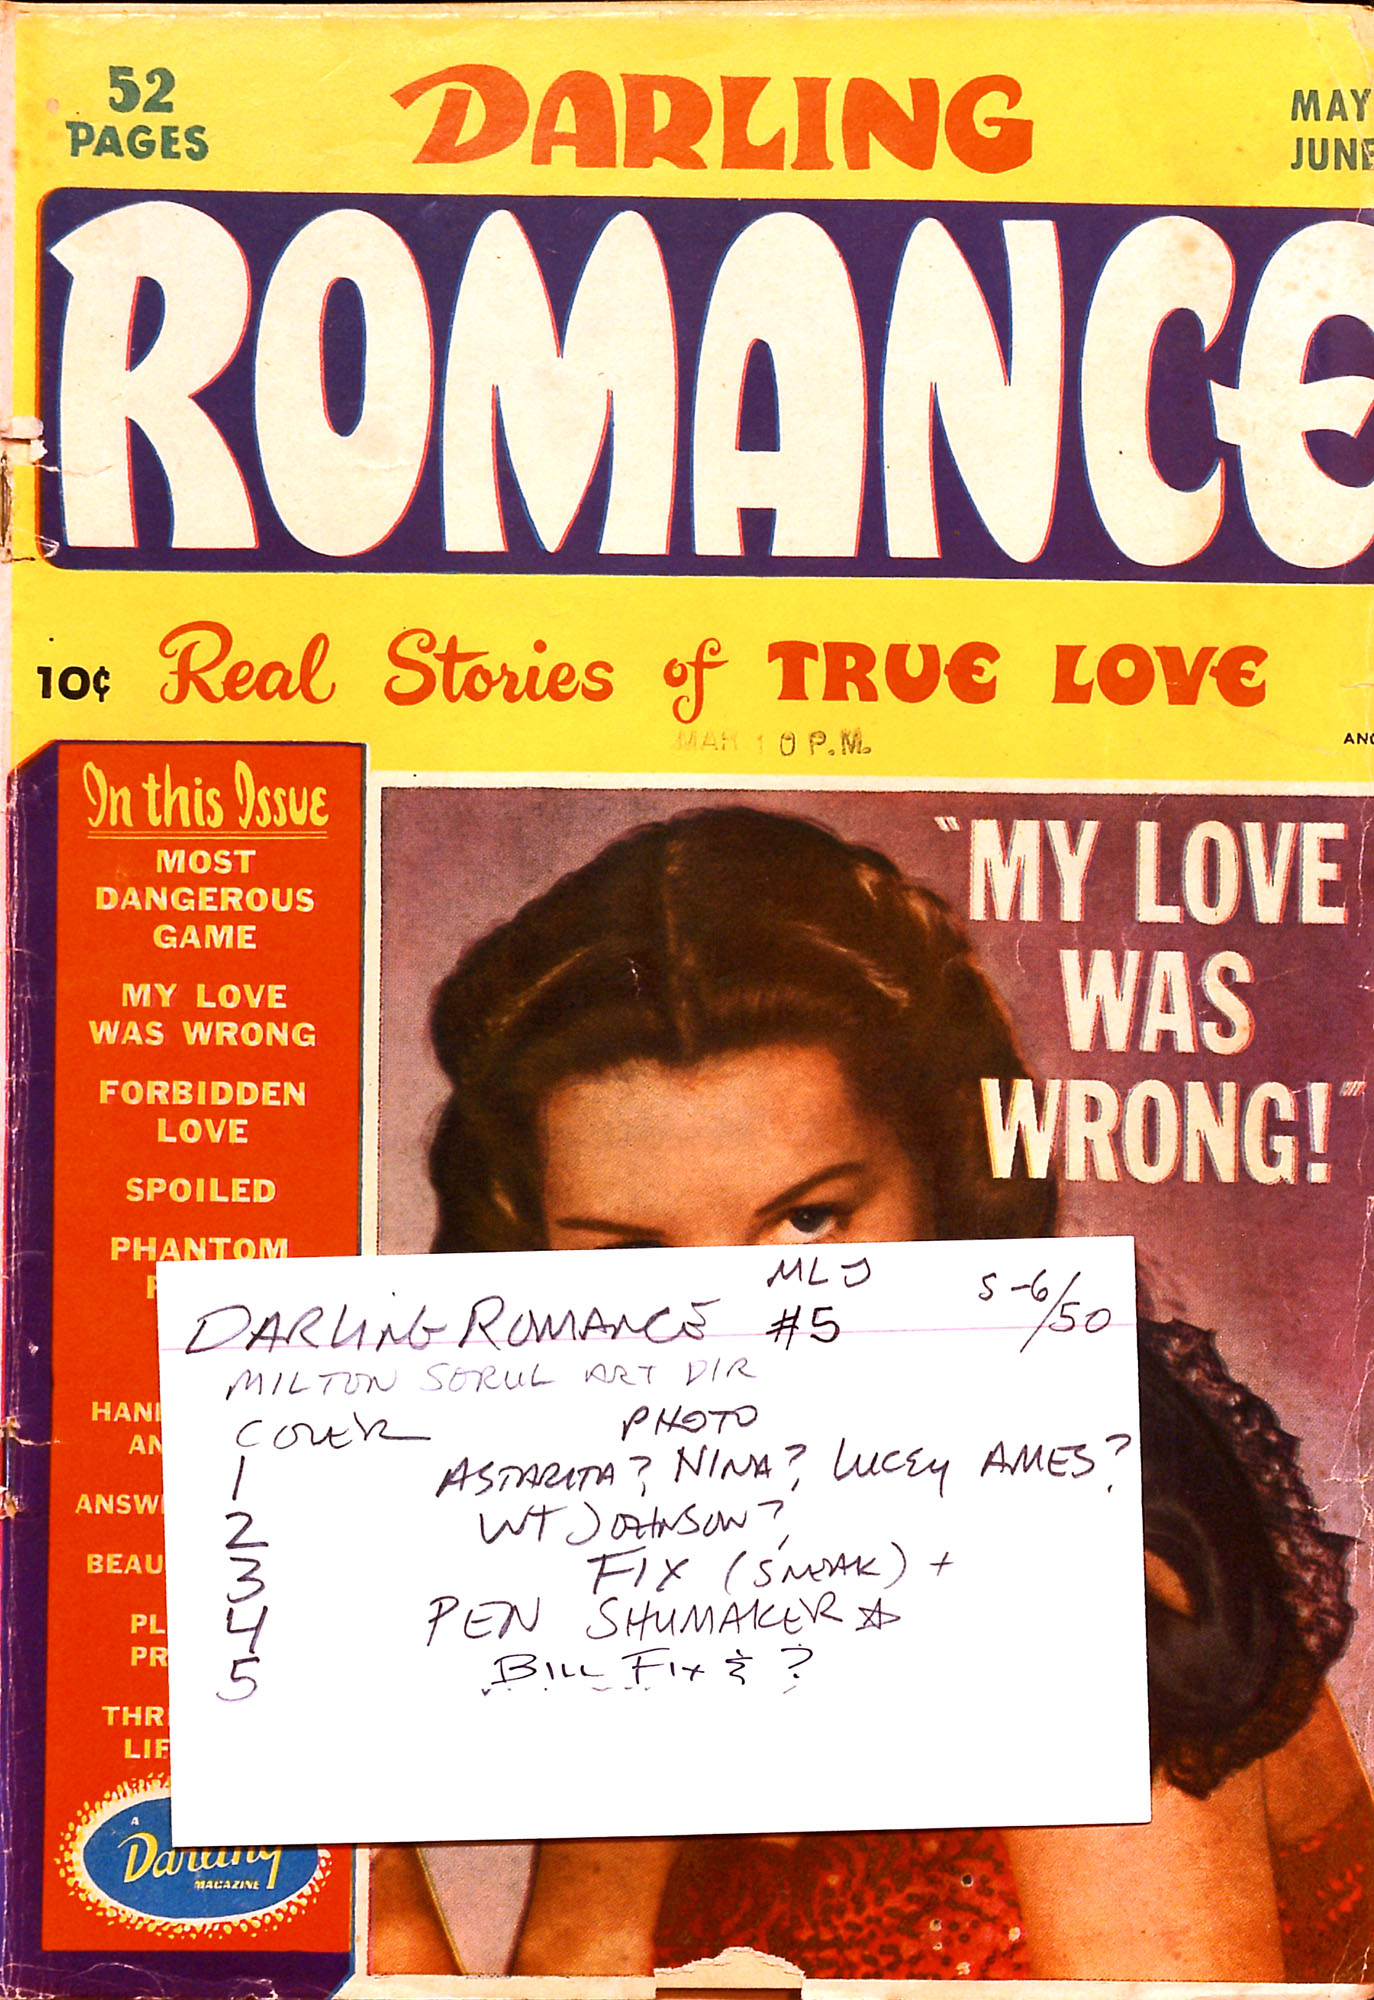 52
PAGES
DARLING
MAY
JUNE
ROMANCE
10¢ Real Stories of TRUE LOVE
MAR 10 P.M.
In this Issue
MOST
DANGEROUS
GAME
MY LOVE
WAS WRONG
FORBIDDEN
LOVE
SPOILED
PHANTOM
HAN
AN
ANSW
BEAU
PL
PR
THR
LIF
A
Darling
MAGAZINE
"MY LOVE
WAS
WRONG!"
MLJ
DARLING ROMANCE #5 5-6/50
MILTON SORUL ART DIR
COVER PHOTO
1 ASTARITA? NINA? LUCEY AMES?
2 WT JOHNSON?
3 FIX (SNEAK) +
4 PEN SHUMAKER ☆
5 BILL FIX & ?